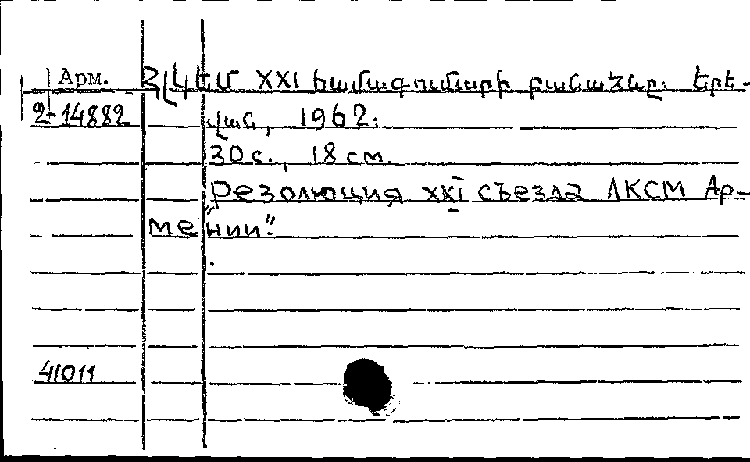 Арм. ՀԼԿԵՄ XXI համագումարի բանաձևը. Երե-
2-14882 վան, 1962.
30 с., 18 см.
"Резолюция XXI съезда ЛКСМ Ар-
мении".
41011